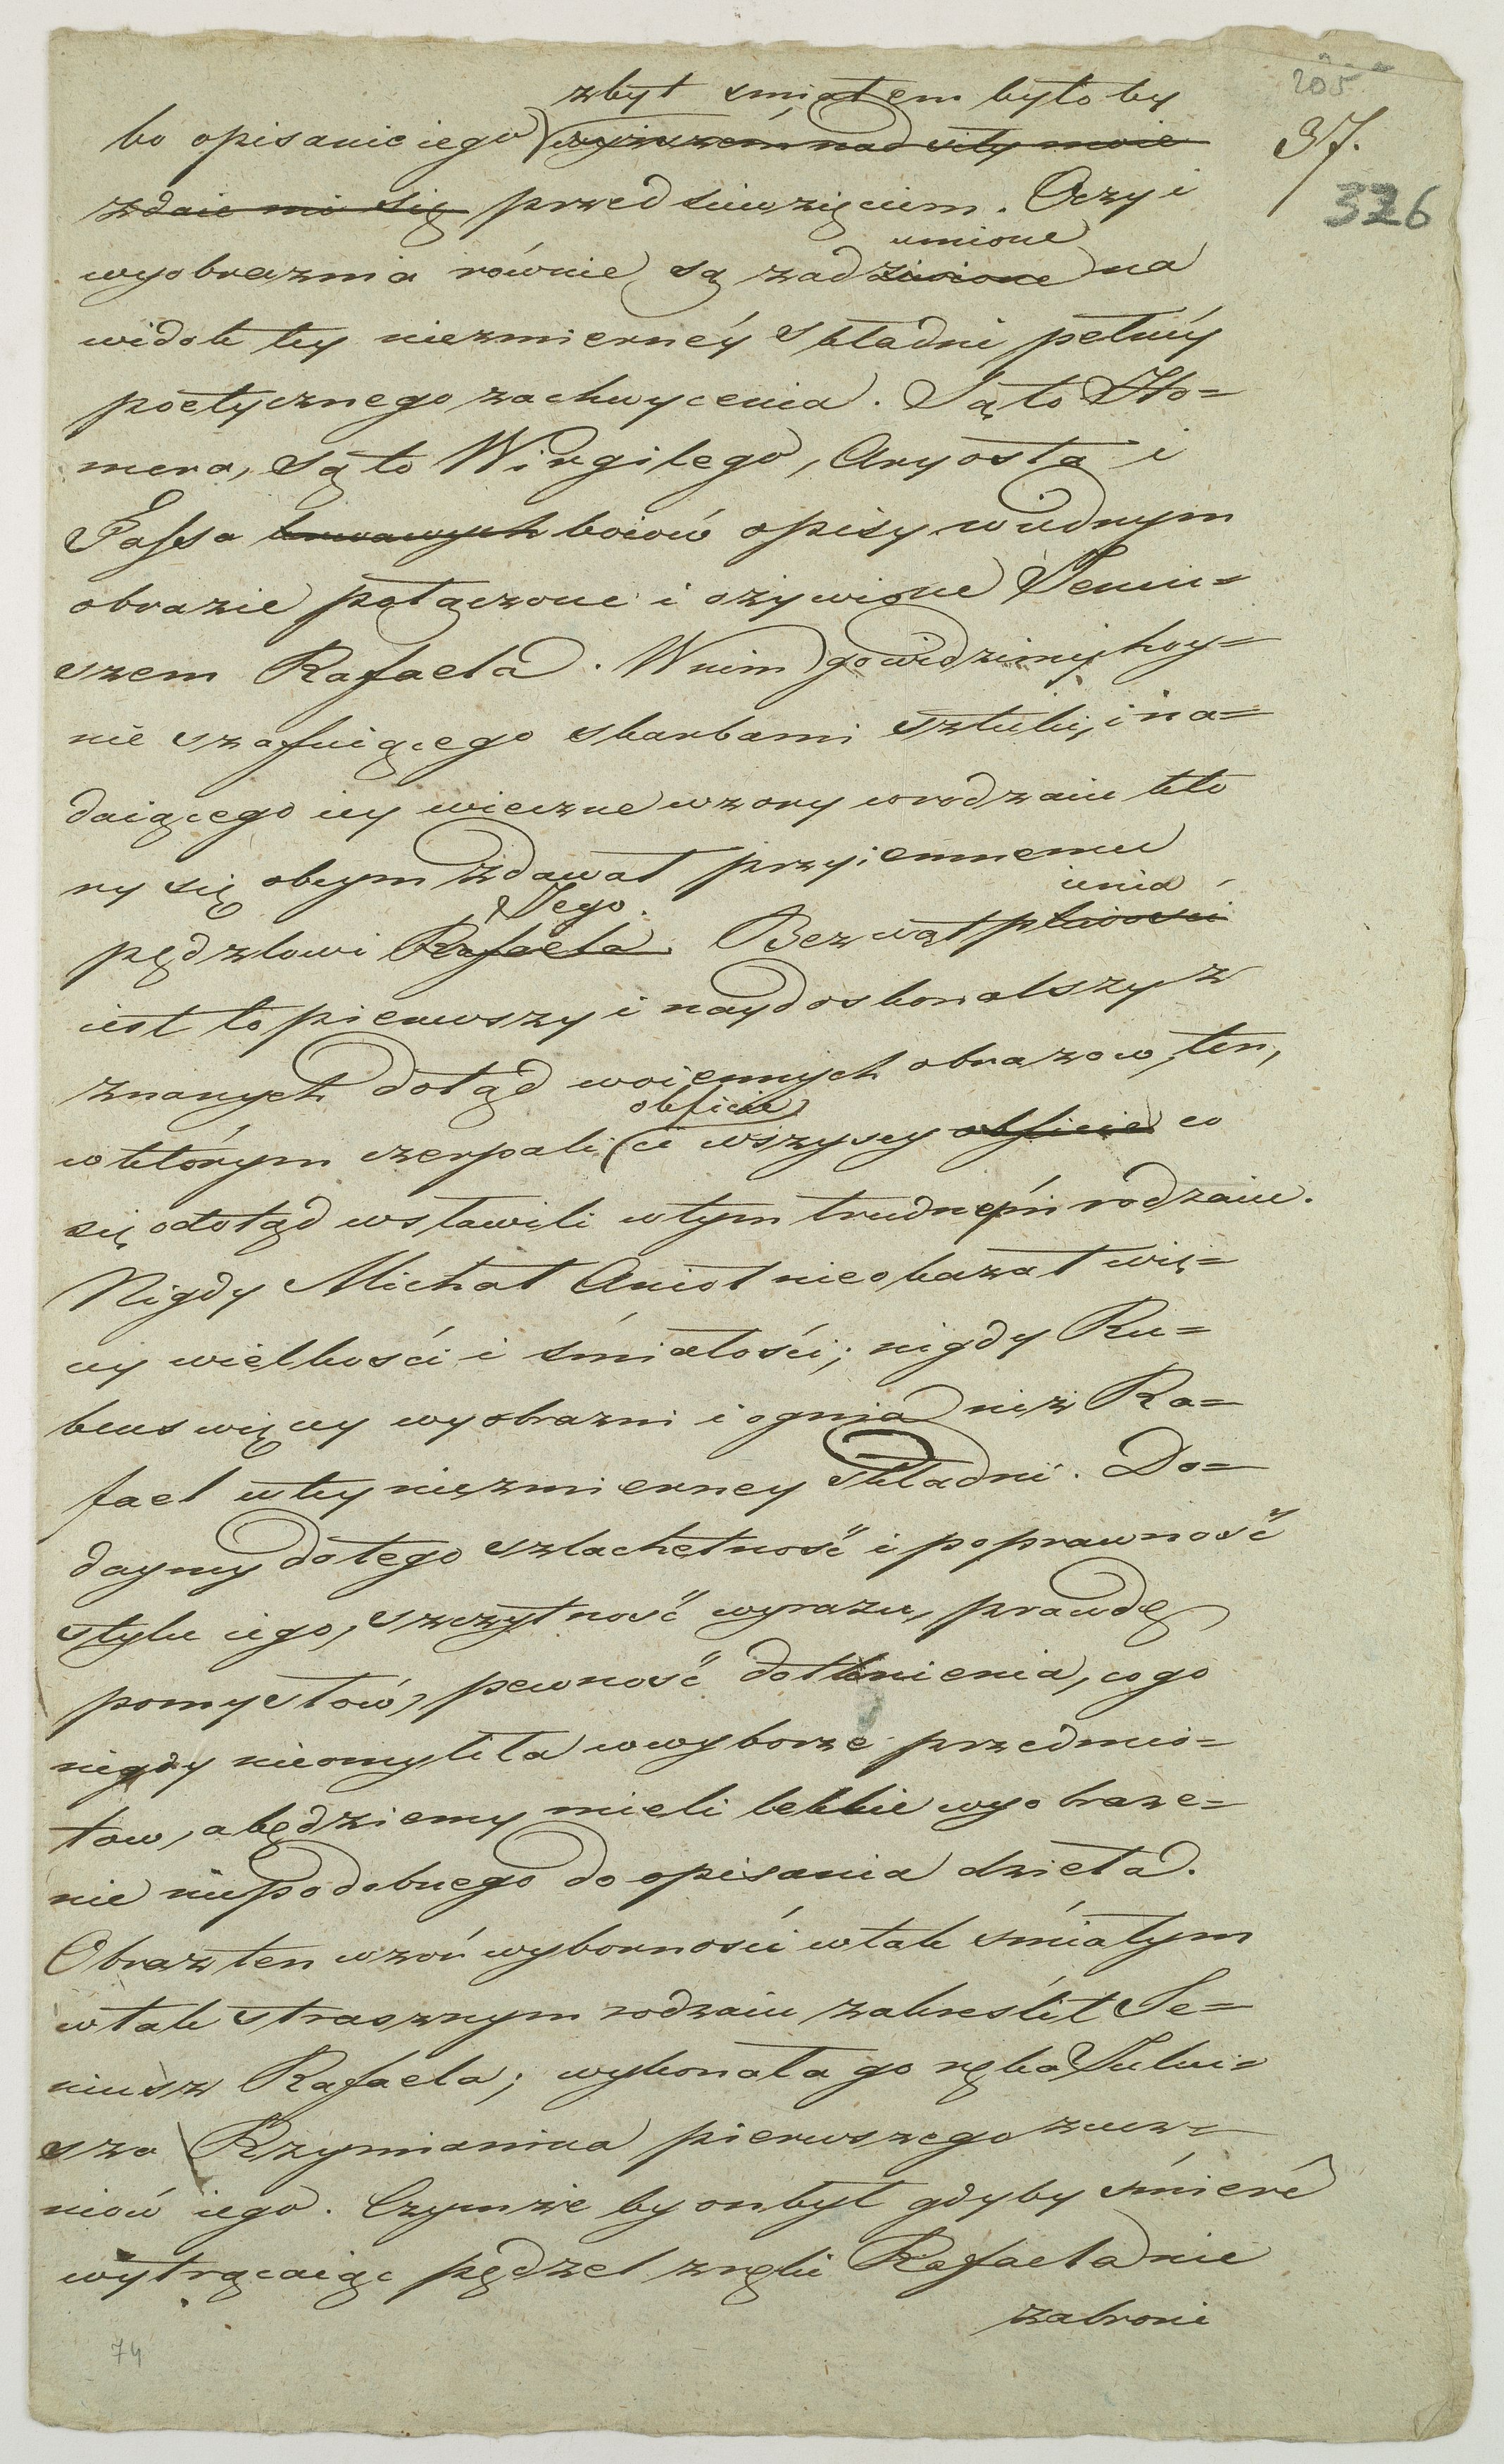 205
37.
376
zbyt smiałem byłoby
bo opisanie iego wyższém nad siły moie
zdaie mi się przedsiewzięciem. Oczy i
umione
wyobraznia równie są zadziwione na
widok tey niezmiernéy składni pełnéy
poetycznego zachwycenia. Są to Ho=
mera, są to Wirgilego, Aryosta i
Tassa krwawych boiów opisy w iednym
obrazie połączone i ożywione Jeniu=
szem Rafaela. W nim go widzimy hoy=
nie szafuiącego skarbami sztuki, i na=
daiącego iey wieczne wzory w rodzaiu któ
ry się obcym zdawał przyiemnemu
Jego. ienia
pędzlowi Rafaela. Bez wątpliwosci
iest to pierwszy i naydoskonalszy z
znanych dotąd woiennych obrazow, ten,
obficie
w którym czerpali ci wszyscy obficie co
się odotąd wsławili w tym trudném rodzaiu.
Nigdy Michał Anioł nieokazał wię=
cy wielkości i śmiałości; nigdy Ru=
bens więcy wyobrazni i ognia niż Ra=
fael w tey niezmierney składni. Do=
daymy do tego szlachetność i poprawność
stylu iego, szczytność wyrazu, prawdę
pomysłów, pewność dotknienia, co go
nigdy nieomyliła w wyborze przedmio=
tow, a będziemy mieli lekkie wyobraże=
nie niepodobnego do opisania dzieła.
Obraz ten wzór wybornosci w tak śmiałym
w tak strasznym rodzaiu zakreślił Je=
niusz Rafaela; wykonała go ręka Juliu=
sza Rzymianina pierwszego z ucz=
niów iego. Czymże by on był gdyby śmierć
wytrącaiąc pędzel z ręki Rafaela nie
zabroni
74